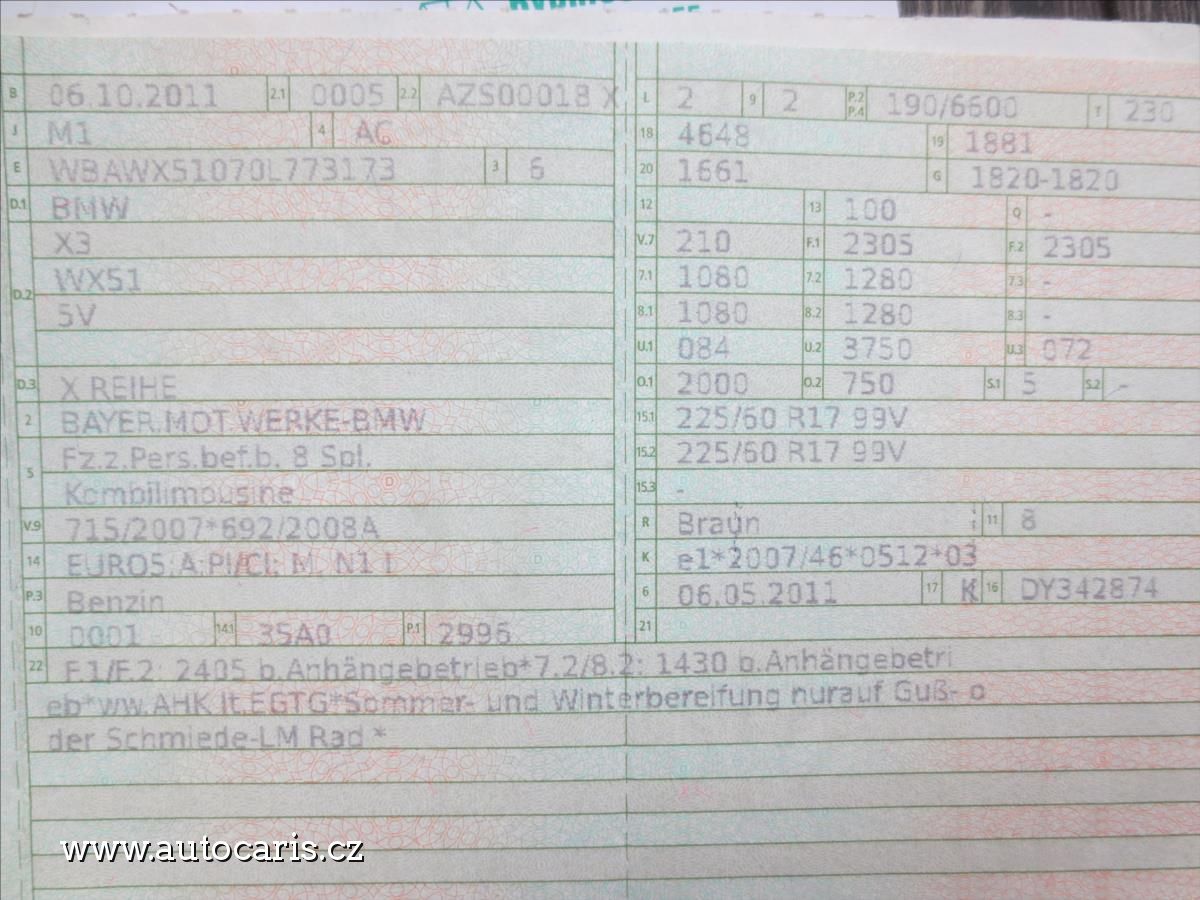 B 06.10.2011 2.1 0005 2.2 AZS00018 X
J M1 4 AC
E WBAWX51070L773173 3 6
D.1 BMW
D.2 X3
WX51
5V
D.3 X REIHE
2 BAYER.MOT.WERKE-BMW
5 Fz.z.Pers.bef.b. 8 Spl.
Kombilimousine
V.9 715/2007*692/2008A
14 EURO5;A;PI/CI; M, N1 I
P.3 Benzin
10 0001 14.1 35A0 P.1 2996
L 2 9 2 P.2 P.4 190/6600 T 230
18 4648 19 1881
20 1661 G 1820-1820
12 13 100 Q -
V.7 210 F.1 2305 F.2 2305
7.1 1080 7.2 1280 7.3 -
8.1 1080 8.2 1280 8.3 -
U.1 084 U.2 3750 U.3 072
O.1 2000 O.2 750 S.1 5 S.2 -
15.1 225/60 R17 99V
15.2 225/60 R17 99V
15.3 -
R Braun 11 8
K e1*2007/46*0512*03
6 06.05.2011 17 K 16 DY342874
21
22 F.1/F.2: 2405 b.Anhängebetrieb*7.2/8.2: 1430 b.Anhängebetri
eb*ww.AHK lt.EGTG*Sommer- und Winterbereifung nurauf Guß- o
der Schmiede-LM Rad *
www.autocaris.cz